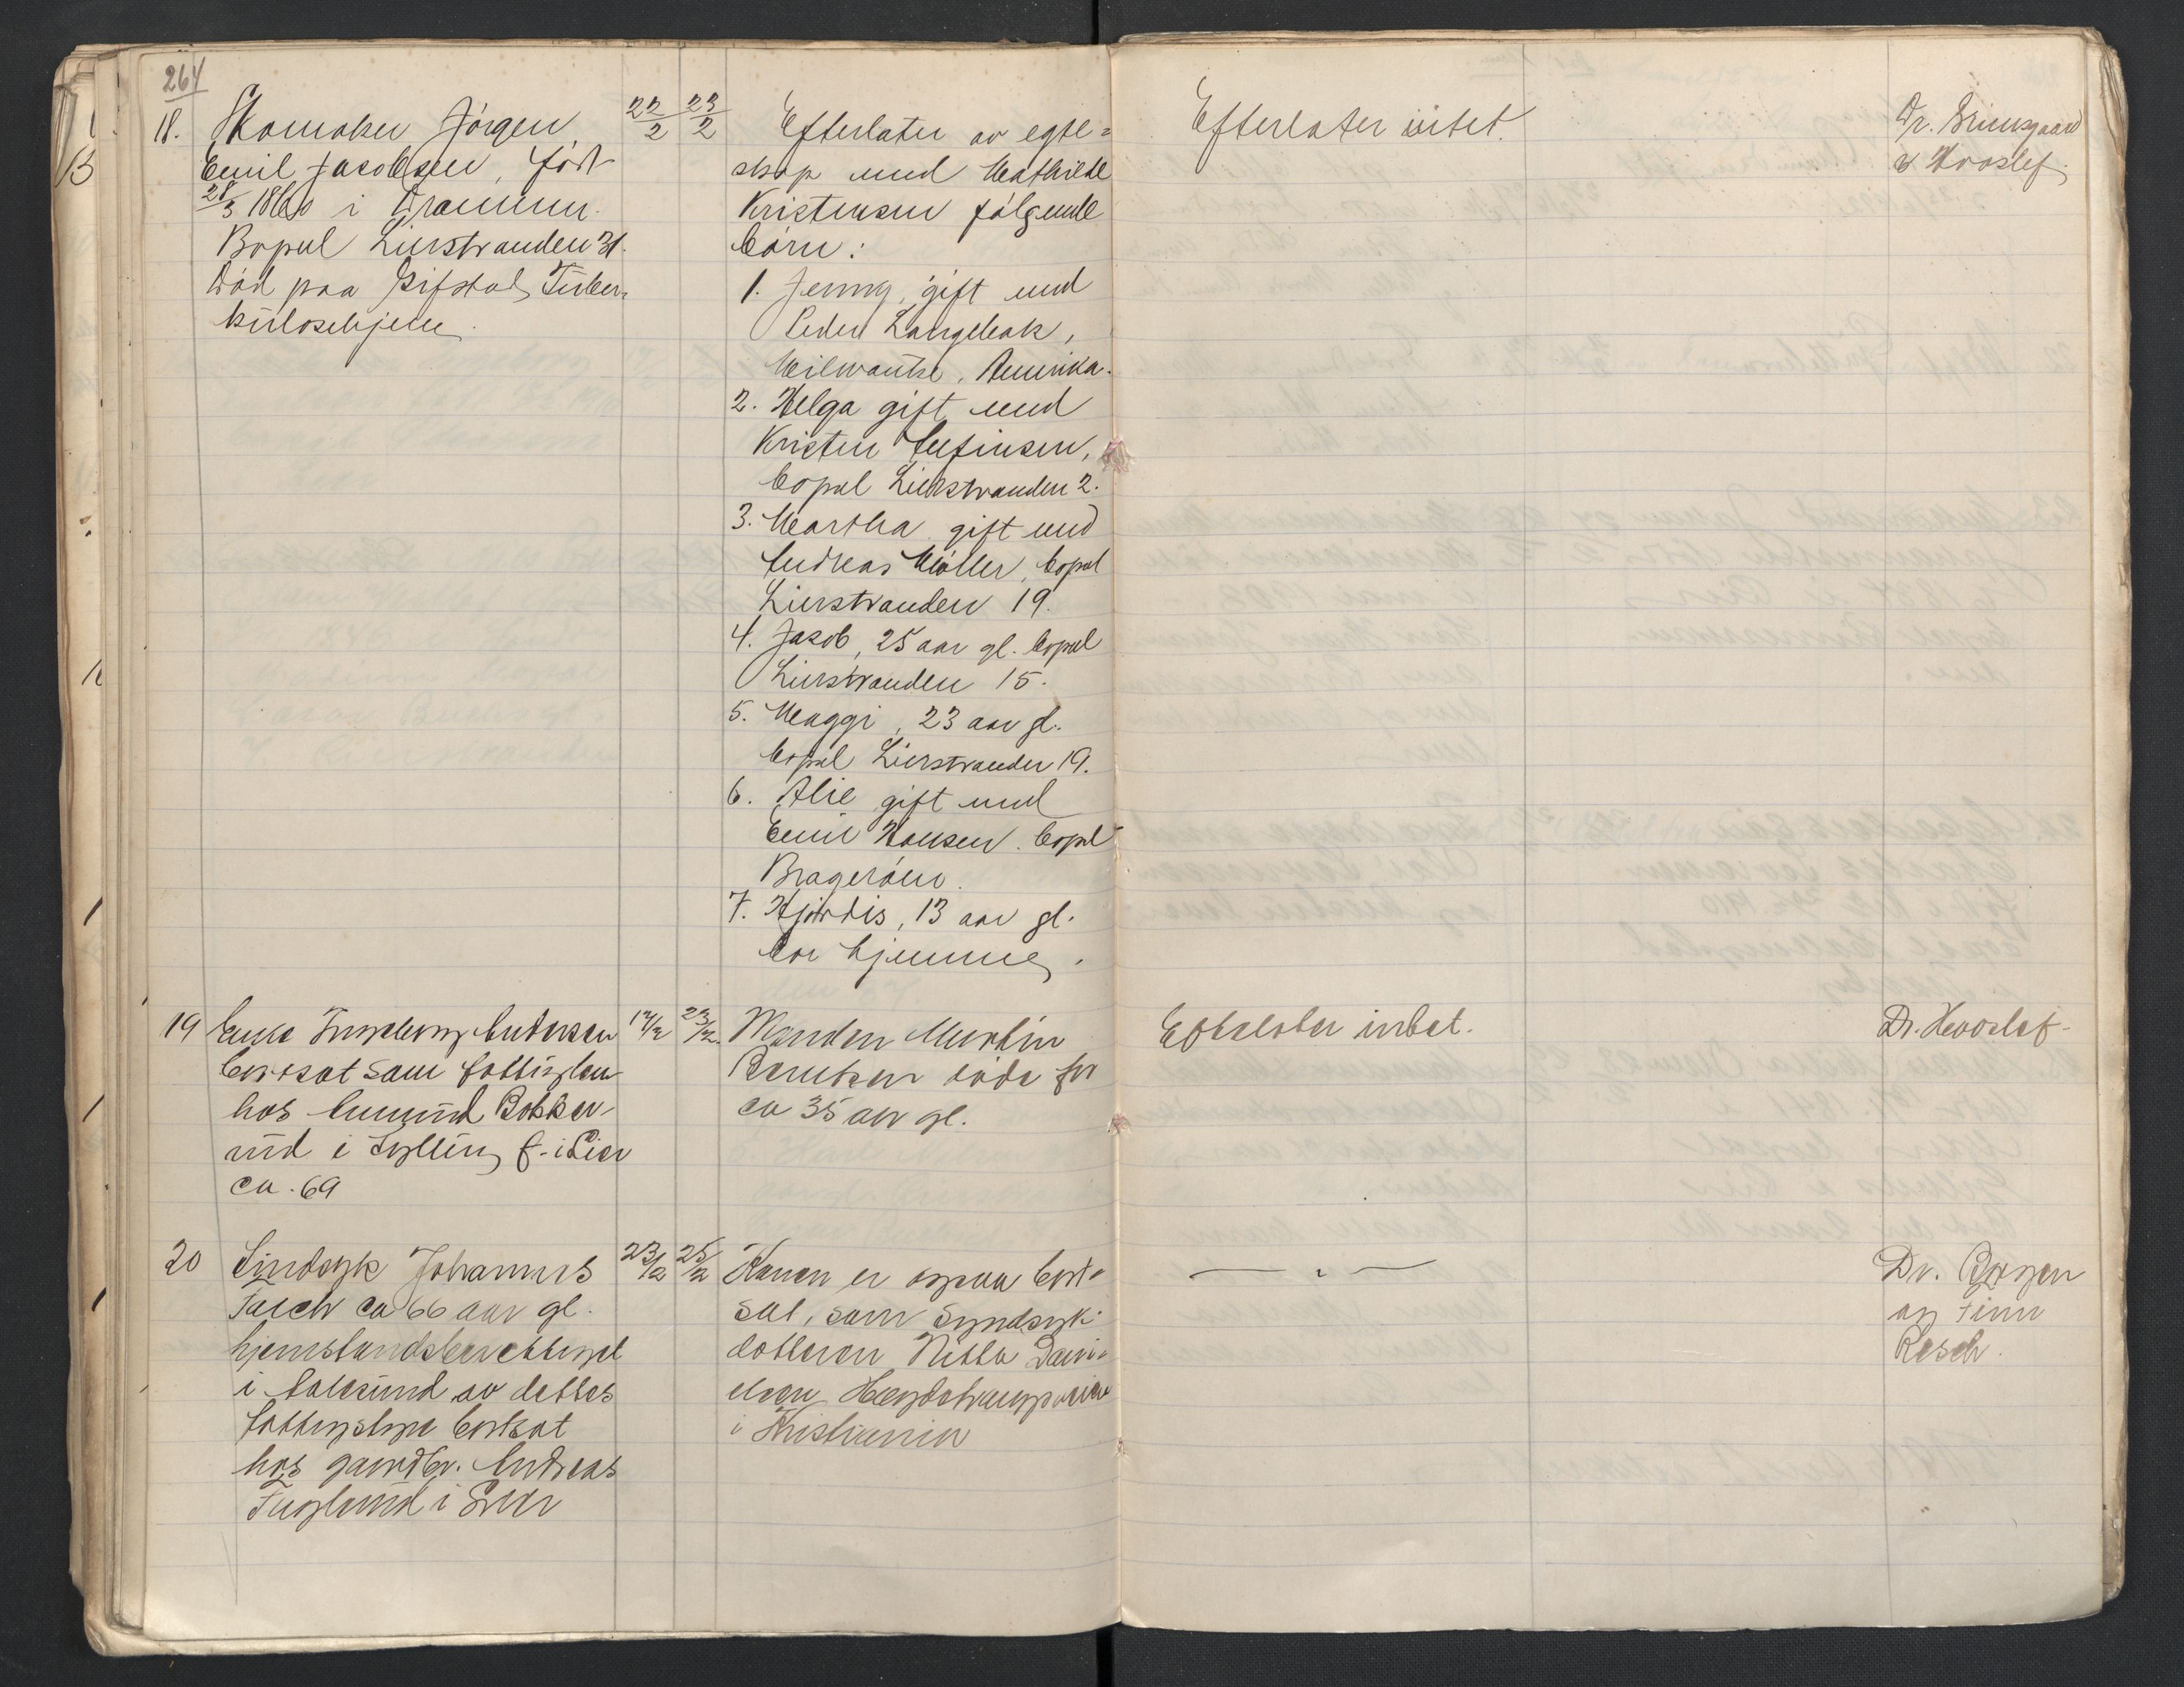 264
18. Skomaker Jörgen
Emil Jacobsen, född
28/3 1860 i Drammen.
Bopæl Lierstranden 31.
Död paa Gifstad Tuber-
kulosehjem.
22/2 23/2
Efterlater av egte-
skap med Mathilde
Kristensen fölgende
börn:
1. Jenny, gift med
Peder Langebak,
Milwauke, Amerika.
2. Helga gift med
Kristen
bopæl Lierstranden 2.
3. Martha gift med
Andreas Möller, bopæl
Lierstranden 19.
4. Jacob, 25 aar gl. bopæl
Lierstranden 15.
5. Maggi, 23 aar gl.
bopæl Lierstranden 19.
6. Alie gift med
Emil Hansen. bopæl
Brageröen.
7. Hjördis, 13 aar gl.
bor hjemme.
Efterlater intet.
Dr.
& Hvoslef.
19 Enke Ingeborg Andersen
bortsat som fattiglem
hos Amund Bokker-
ud i Sylling f. i Lier
ca. 69
17/2 23/2.
Manden Martin
Berntsen döde for
ca 35 aar gl.
Efterlater intet.
Dr. Hvoslef
20 Sindsyk Johannes
ca 66 aar gl.
hjemstandsberettiget
i Aalesund av dettes
fattigstyre bortsat
hos gaardbr. Andreas
Fuglerud i Lier
23/2 25/2
Konen er ogsaa bort-
sat, som Syndsyk:
datteren Netta Dani-
elsen
i Kristiania
— " —
Dr. Borgen
og Finn
Resch.